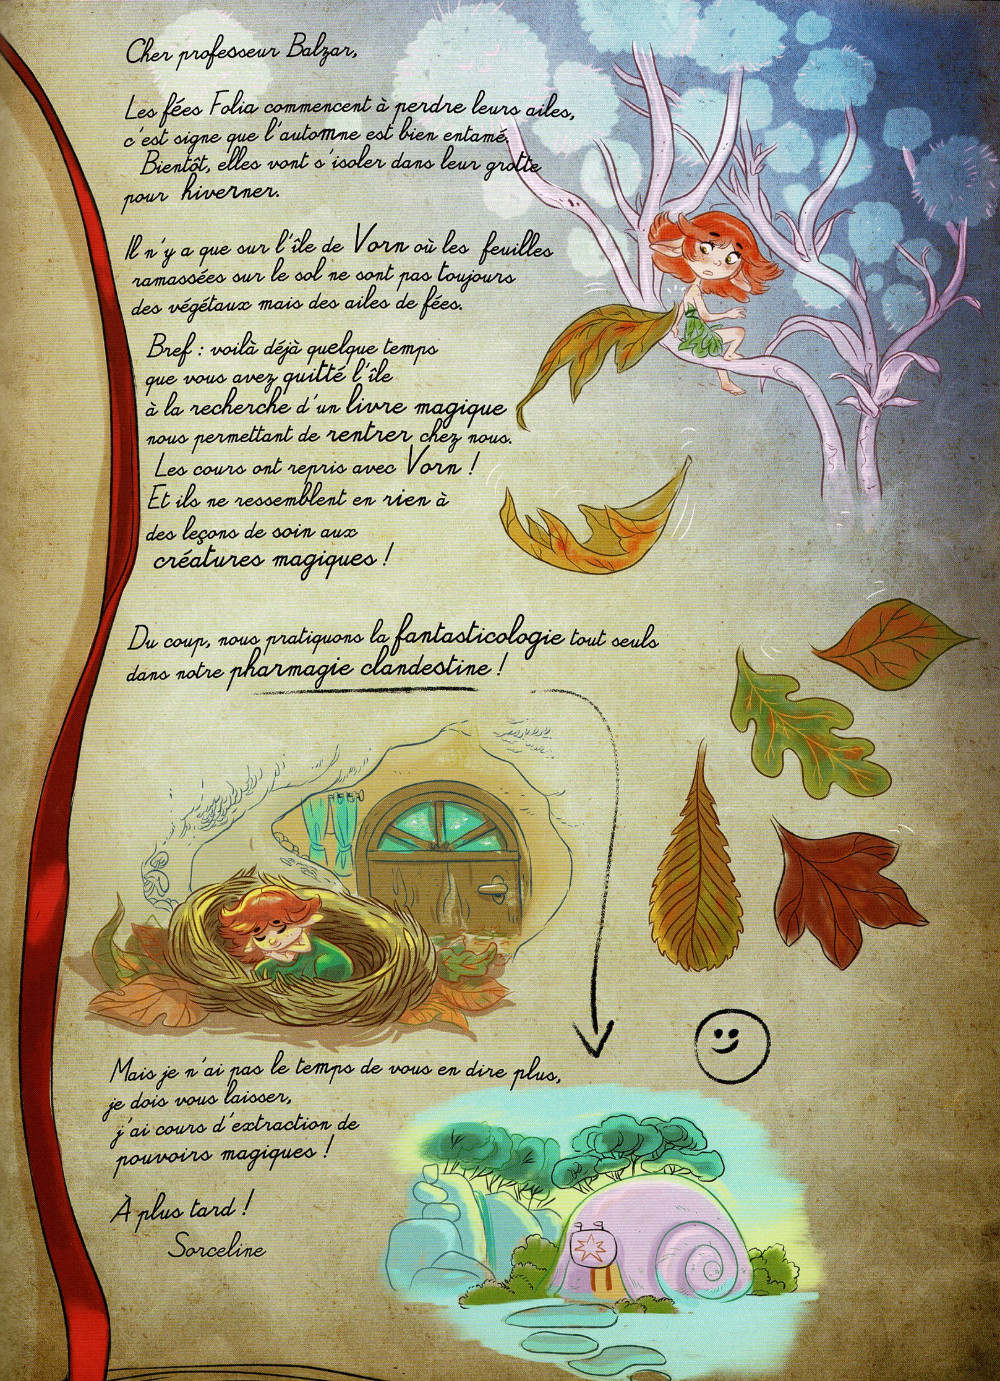 Cher professeur Balzar,
Les fées Folia commencent à perdre leurs ailes,
c'est signe que l'automne est bien entamé.
Bientôt, elles vont s'isoler dans leur grotte
pour hiverner.
Il n'y a que sur l'île de Vorn où les feuilles
ramassées sur le sol ne sont pas toujours
des végétaux mais des ailes de fées.
Bref : voilà déjà quelque temps
que vous avez quitté l'île
à la recherche d'un livre magique
nous permettant de rentrer chez nous.
Les cours ont repris avec Vorn !
Et ils ne ressemblent en rien à
des leçons de soin aux
créatures magiques !
Du coup, nous pratiquons la fantasticologie tout seuls
dans notre pharmagie clandestine !
Mais je n'ai pas le temps de vous en dire plus,
je dois vous laisser,
j'ai cours d'extraction de
pouvoirs magiques !
À plus tard !
Sorceline